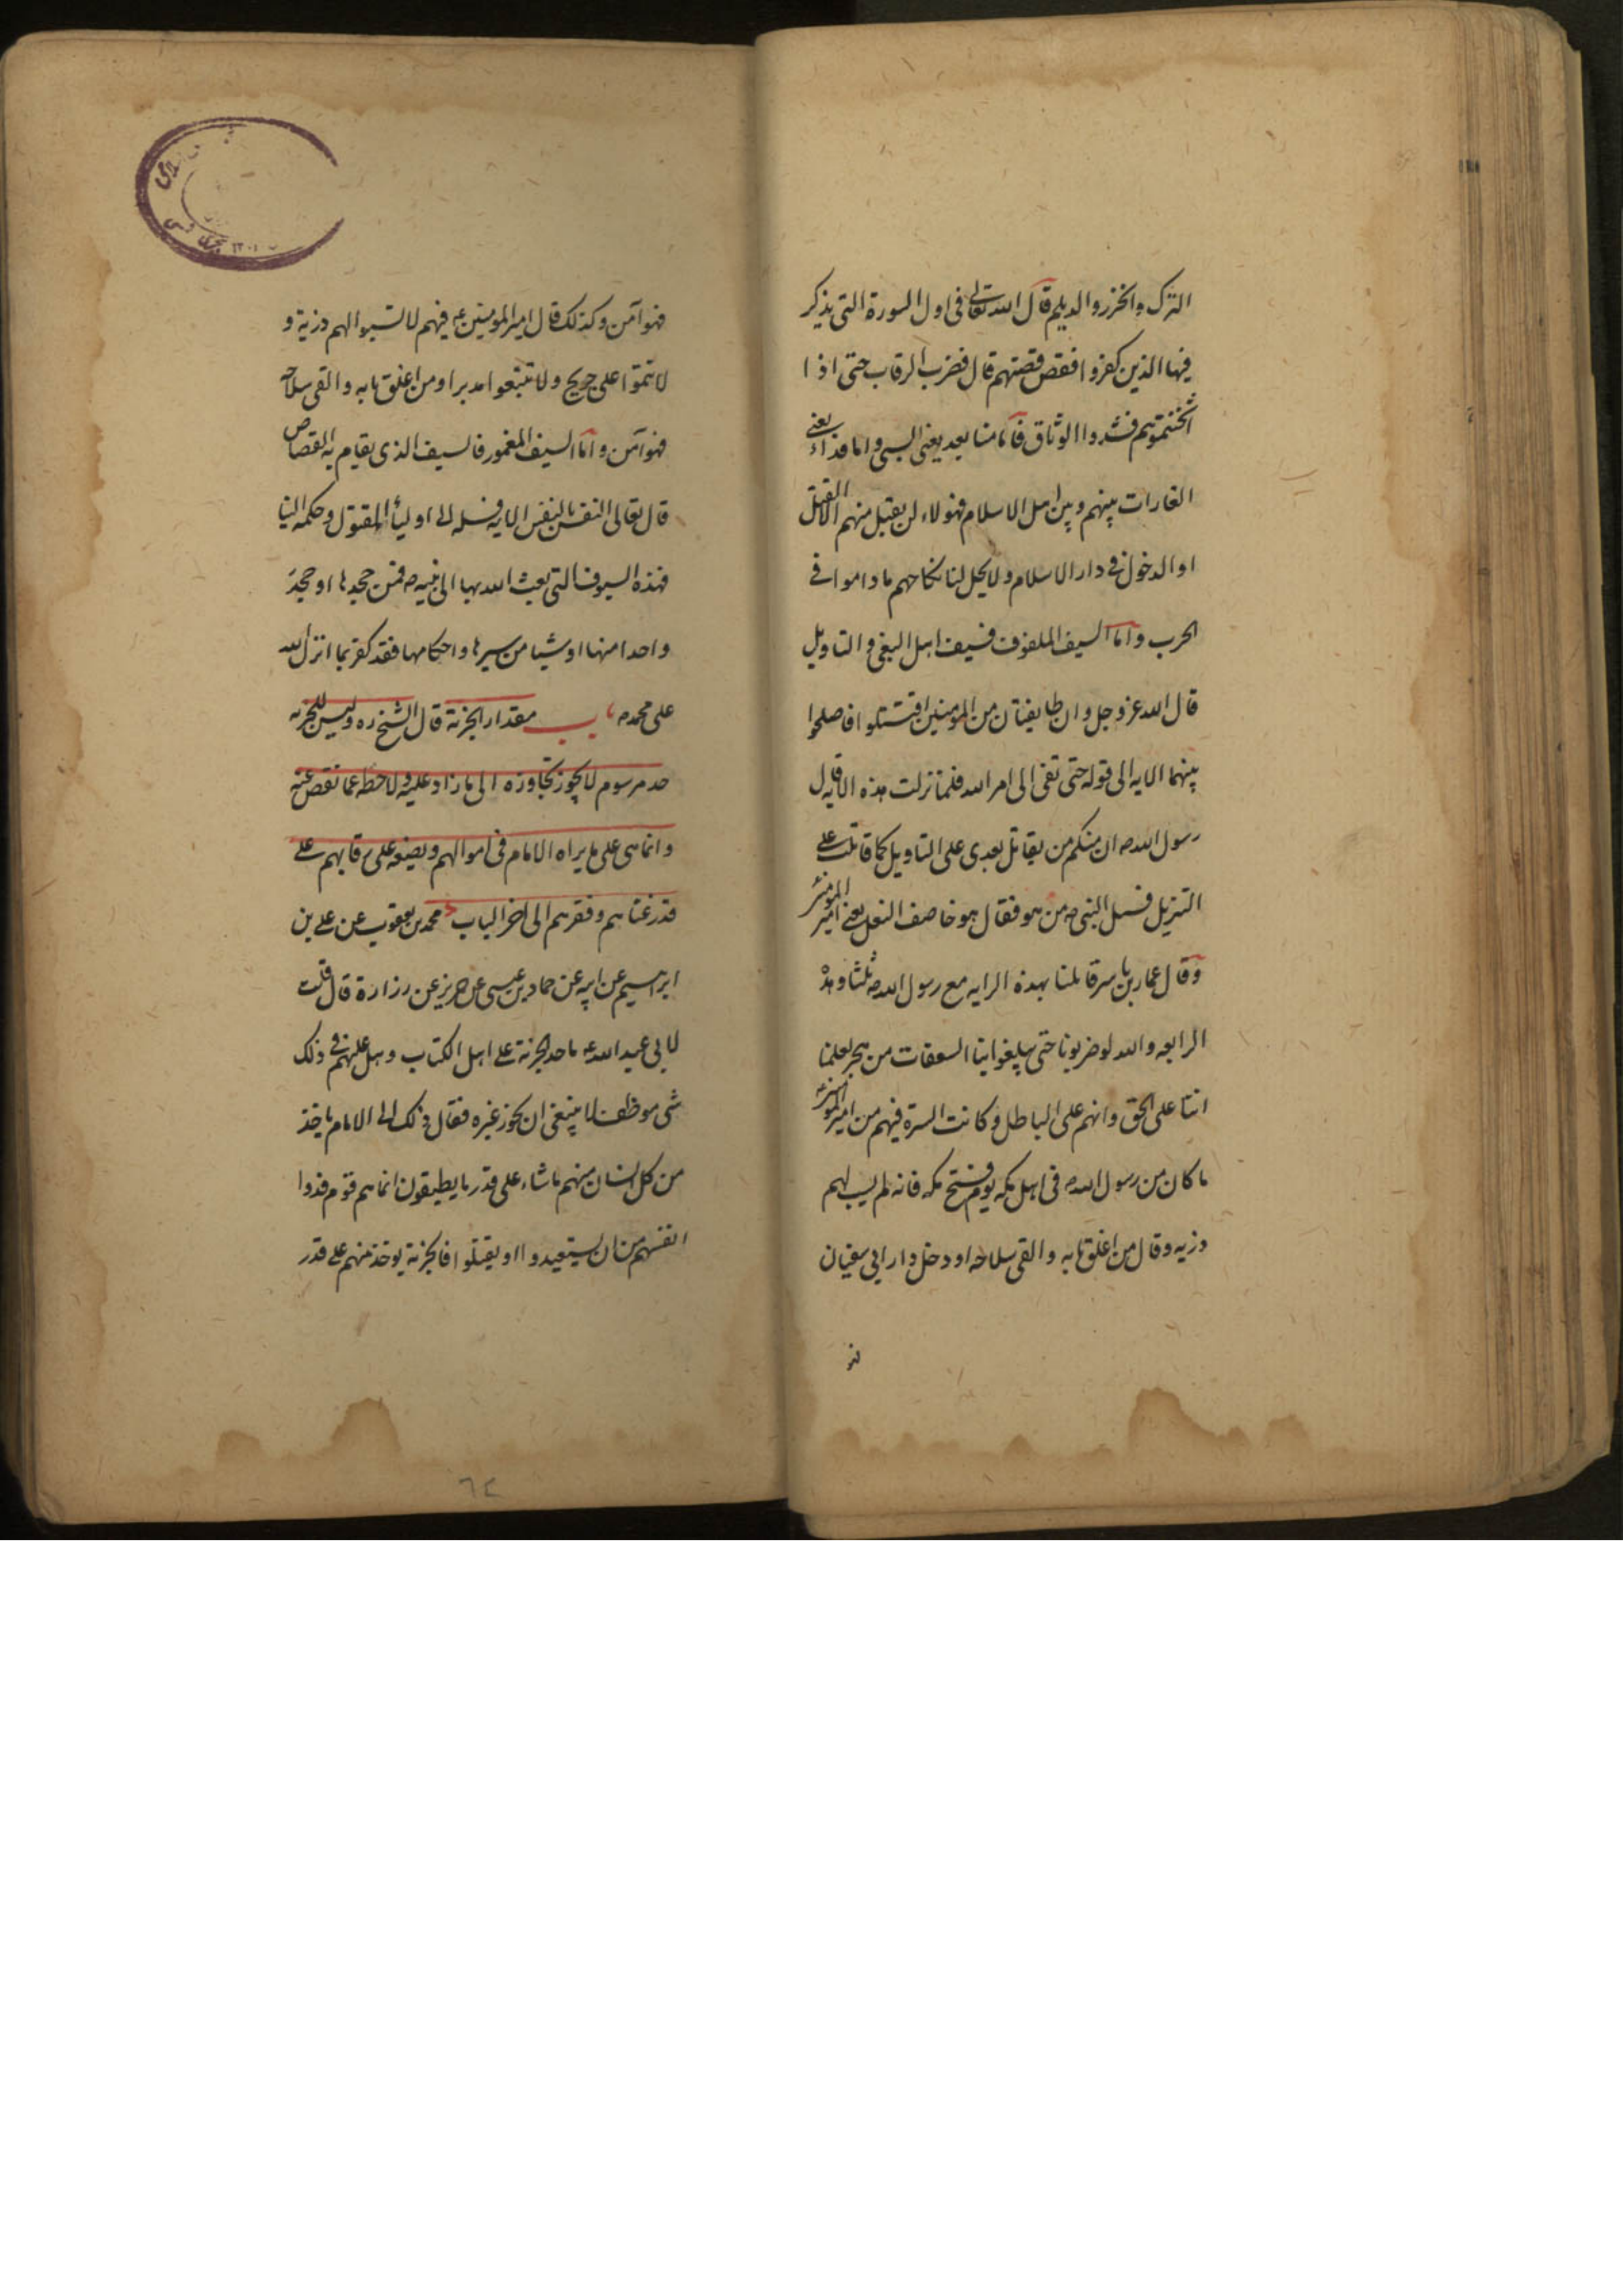 الترك والخزر والديلم قال الله تعالى فى اول السورة التى يذكر
فيها الذين كفروا فقص قصتهم قال فضرب الرقاب حتى اذا
اثخنتموهم فشدوا الوثاق فاما منا بعد يعنى السبى واما فداء يعنى
الغارات بينهم وبين اهل الاسلام فهولاء لن يقبل منهم الا القتل
او الدخول فى دار الاسلام ولا يحل لنا نكاحهم ما داموا فى
الحرب واما السيف الملفوف فسيف اهل البغى والتاويل
قال الله عز وجل وان طايفتان من المومنين اقتتلوا فاصلحوا
بينهما الايه الى قوله حتى تفى الى امر الله فلما نزلت هذه الايه قال
رسول الله ص ان منكم من يقاتل بعدى على التاويل كما قاتلت على
التنزيل فسئل النبى ص من هو فقال هو خاصف النعل يعنى امير المومنين
وقال عمار بن ياسر قاتلنا بهذه الرايه مع رسول الله ص ثلثا وهذه
الرابعه والله لو ضربونا حتى يبلغوا بنا السعفات من هجر لعلمنا
اننا على الحق وانهم على الباطل وكانت السيرة فيهم من امير المومنين
ما كان من رسول الله ص فى اهل مكه يوم فتح مكه فانه لم يسب لهم
ذريه وقال من اغلق بابه والقى سلاحه او دخل دار ابى سفيان
فهو
فهو آمن وكذلك قال امير المومنين ع فيهم لا تسبوا لهم ذرية و
لا تتموا على جريح ولا تتبعوا مدبرا ومن اغلق بابه والقى سلاحه
فهو آمن واما السيف المغمور فالسيف الذى يقام به القصاص
قال تعالى النفس بالنفس الايه فسله الى اولياء المقتول وحكمه الينا
فهذه السيوف التى بعث الله بها الى نبيه ص فمن جحدها او جحد
واحدا منها او شيا من سيرها واحكامها فقد كفر بما انزل الله
على محمد ص باب مقدار الجزية قال الشيخ ره وليس للجزيه
حد مرسوم لا يجوز تجاوزه الى ما زاد عليه ولا حطه عما نقص عنه
وانما هى على ما يراه الامام فى اموالهم ويضعه على رقابهم على
قدر غناهم وفقرهم الى اخر الباب محمد بن يعقوب عن على بن
ابراهيم عن ابيه عن حماد بن عيسى عن حريز عن زرارة قال قلت
لابى عبد الله ع ما حد الجزية على اهل الكتاب وهل عليهم فى ذلك
شى موظف لا ينبغى ان يجوز غيره فقال ذلك الى الامام ياخذ
من كل انسان منهم ما شاء على قدر ما يطيقون انما هم قوم فدوا
انفسهم من ان يستعبدوا او يقتلوا فالجزية يوخذ منهم على قدر
٦٢